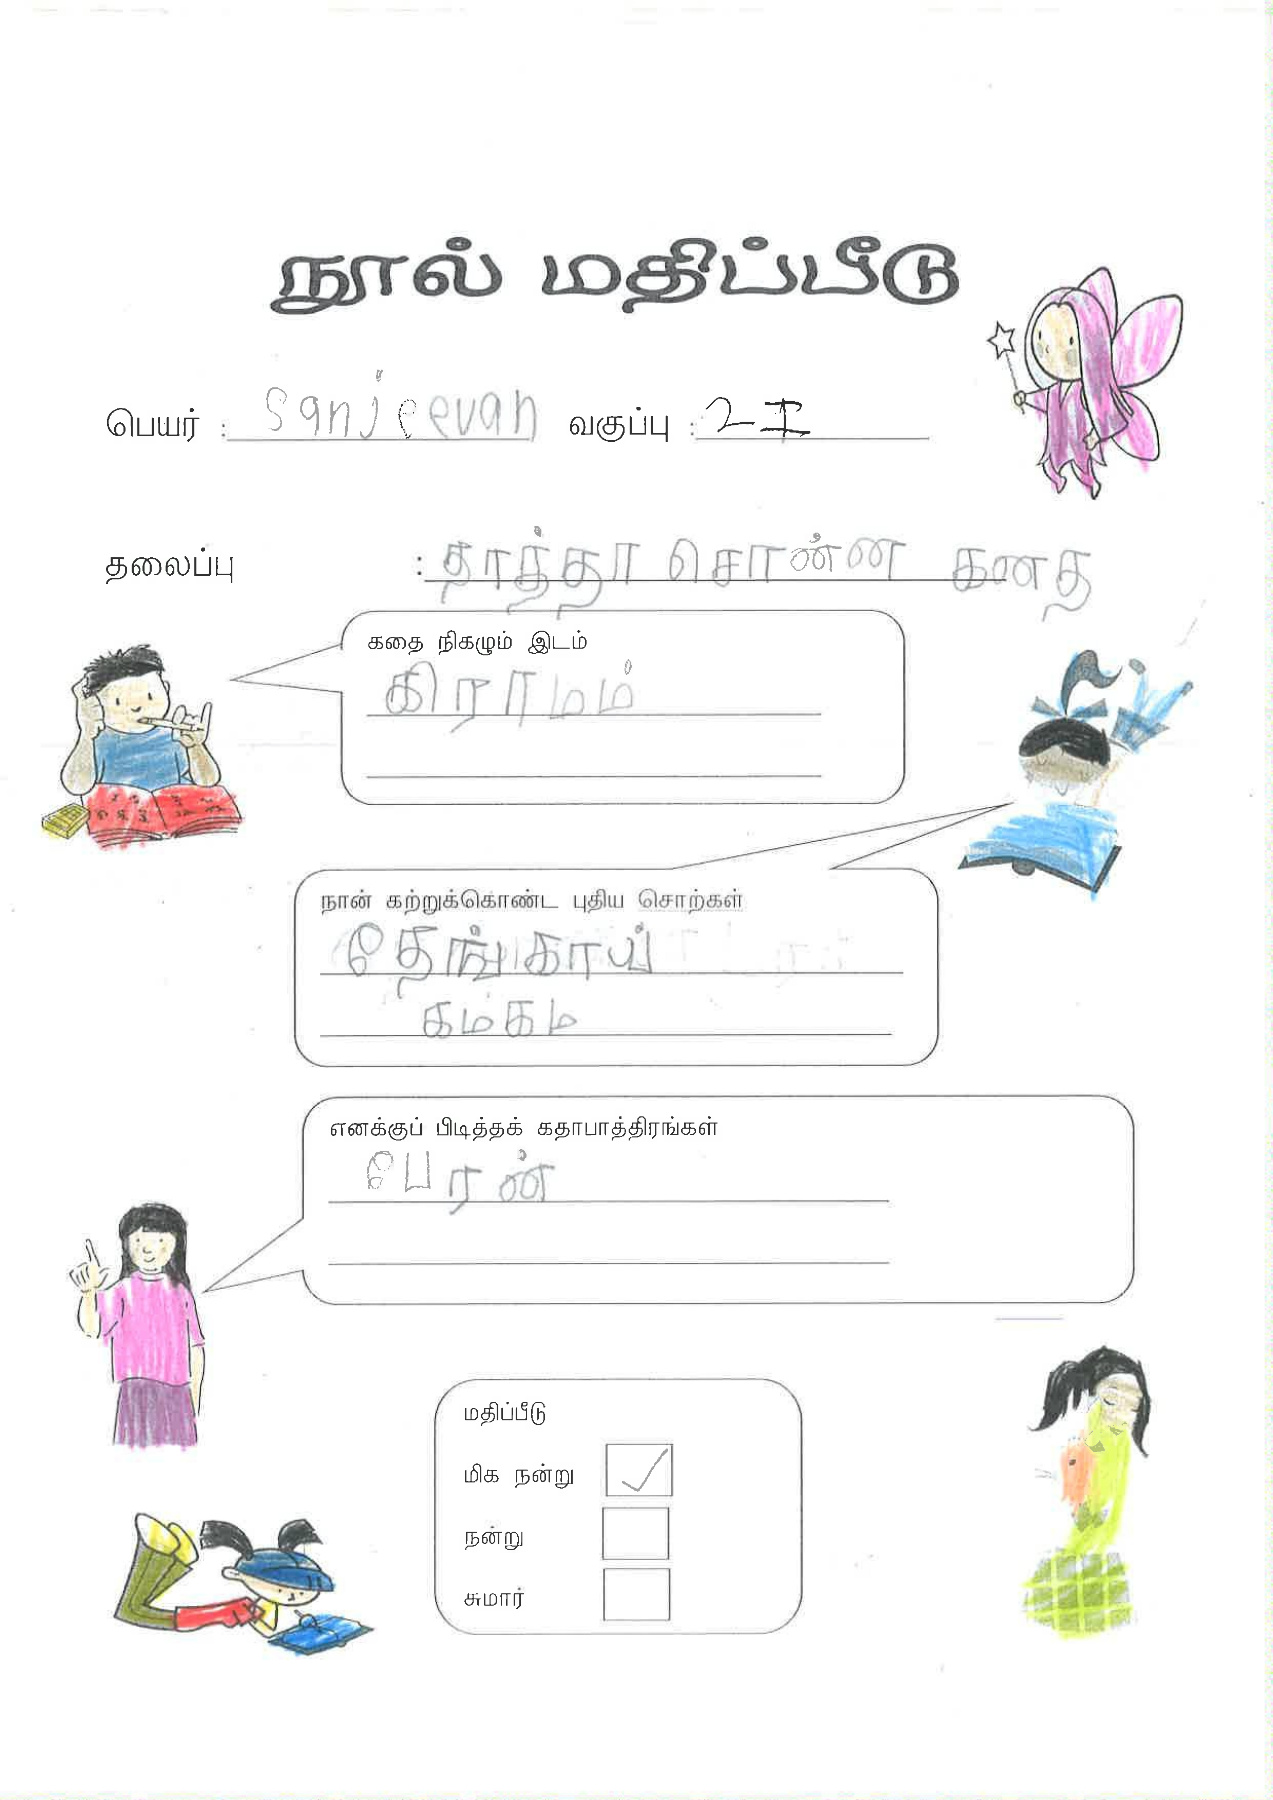 நூல் மதிப்பீடு
பெயர் : Sanjeevan வகுப்பு : 2I
தலைப்பு : தாத்தா சொன்ன கதை
கதை நிகழும் இடம்
கிராமம்
நான் கற்றுக்கொண்ட புதிய சொற்கள்
தேங்காய்
கமகம
எனக்குப் பிடித்தக் கதாபாத்திரங்கள்
பேரன்
மதிப்பீடு
மிக நன்று ✓
நன்று
சுமார்